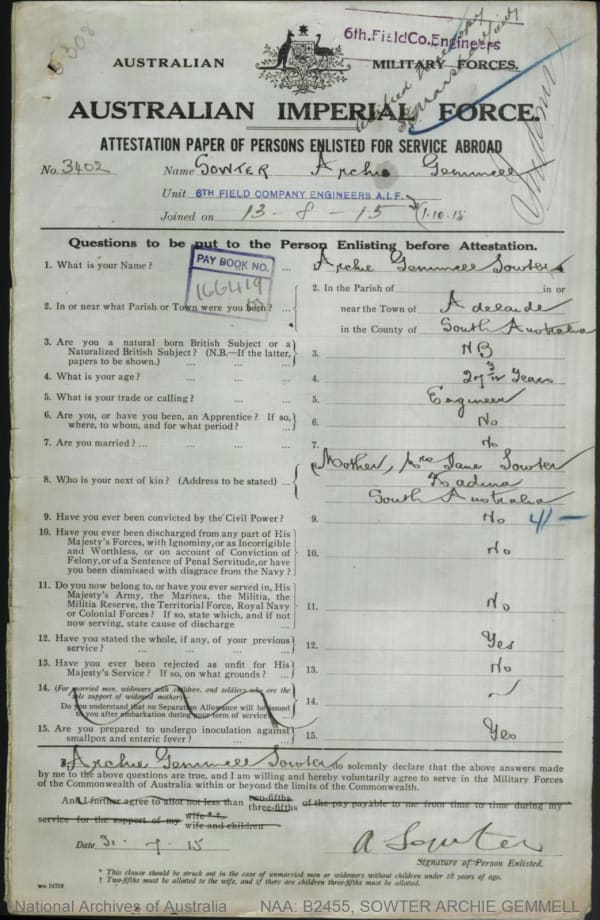 6th.Field Co. Engineers
AUSTRALIAN MILITARY FORCES.
AUSTRALIAN IMPERIAL FORCE.
ATTESTATION PAPER OF PERSONS ENLISTED FOR SERVICE ABROAD
No. 3402 Name SOWTER Archie Gemmell
Unit 6TH FIELD COMPANY ENGINEERS A.I.F.
Joined on 13-8-15 1.10.15
Questions to be put to the Person Enlisting before Attestation.
PAY BOOK NO.
166419
1. What is your Name? ... Archie Gemmell Sowter
2. In or near what Parish or Town were you born? ...
2. In the Parish of in or
near the Town of Adelaide
in the County of South Australia
3. Are you a natural born British Subject or a
Naturalized British Subject? (N.B.—If the latter,
papers to be shown.) ... ... 3. NB
4. What is your age? ... ... ... 4. 27 3/12 Years
5. What is your trade or calling? ... ... 5. Engineer
6. Are you, or have you been, an Apprentice? If so,
where, to whom, and for what period? ... 6. No
7. Are you married? ... ... ... ... 7. No
8. Who is your next of kin? (Address to be stated) ... 8. Mother, Mrs Jane Sowter
Kadina
South Australia
9. Have you ever been convicted by the Civil Power? 9. No 4/-
10. Have you ever been discharged from any part of His
Majesty's Forces, with Ignominy, or as Incorrigible
and Worthless, or on account of Conviction of
Felony, or of a Sentence of Penal Servitude, or have
you been dismissed with disgrace from the Navy? 10. No
11. Do you now belong to, or have you ever served in, His
Majesty's Army, the Marines, the Militia, the
Militia Reserve, the Territorial Force, Royal Navy
or Colonial Forces? If so, state which, and if not
now serving, state cause of discharge ... 11. No
12. Have you stated the whole, if any, of your previous
service? ... ... ... ... 12. Yes
13. Have you ever been rejected as unfit for His
Majesty's Service? If so, on what grounds? ... 13. No
14. (For married men, widowers with children, and soldiers who are the
sole support of widowed mother)—
Do you understand that no Separation Allowance will be issued
to you after embarkation during your term of service? 14.
15. Are you prepared to undergo inoculation against
smallpox and enteric fever? ... ... 15. Yes
I, Archie Gemmell Sowter do solemnly declare that the above answers made
by me to the above questions are true, and I am willing and hereby voluntarily agree to serve in the Military Forces
of the Commonwealth of Australia within or beyond the limits of the Commonwealth.
And I further agree to allot not less than two-fifths three-fifths of the pay payable to me from time to time during my
service for the support of my wife * †. wife and children
Date 31. 7. 15 A Sowter
Signature of Person Enlisted.
* This clause should be struck out in the case of unmarried men or widowers without children under 18 years of age.
† Two-fifths must be allotted to the wife, and if there are children three-fifths must be allotted.
National Archives of Australia NAA: B2455, SOWTER ARCHIE GEMMELL